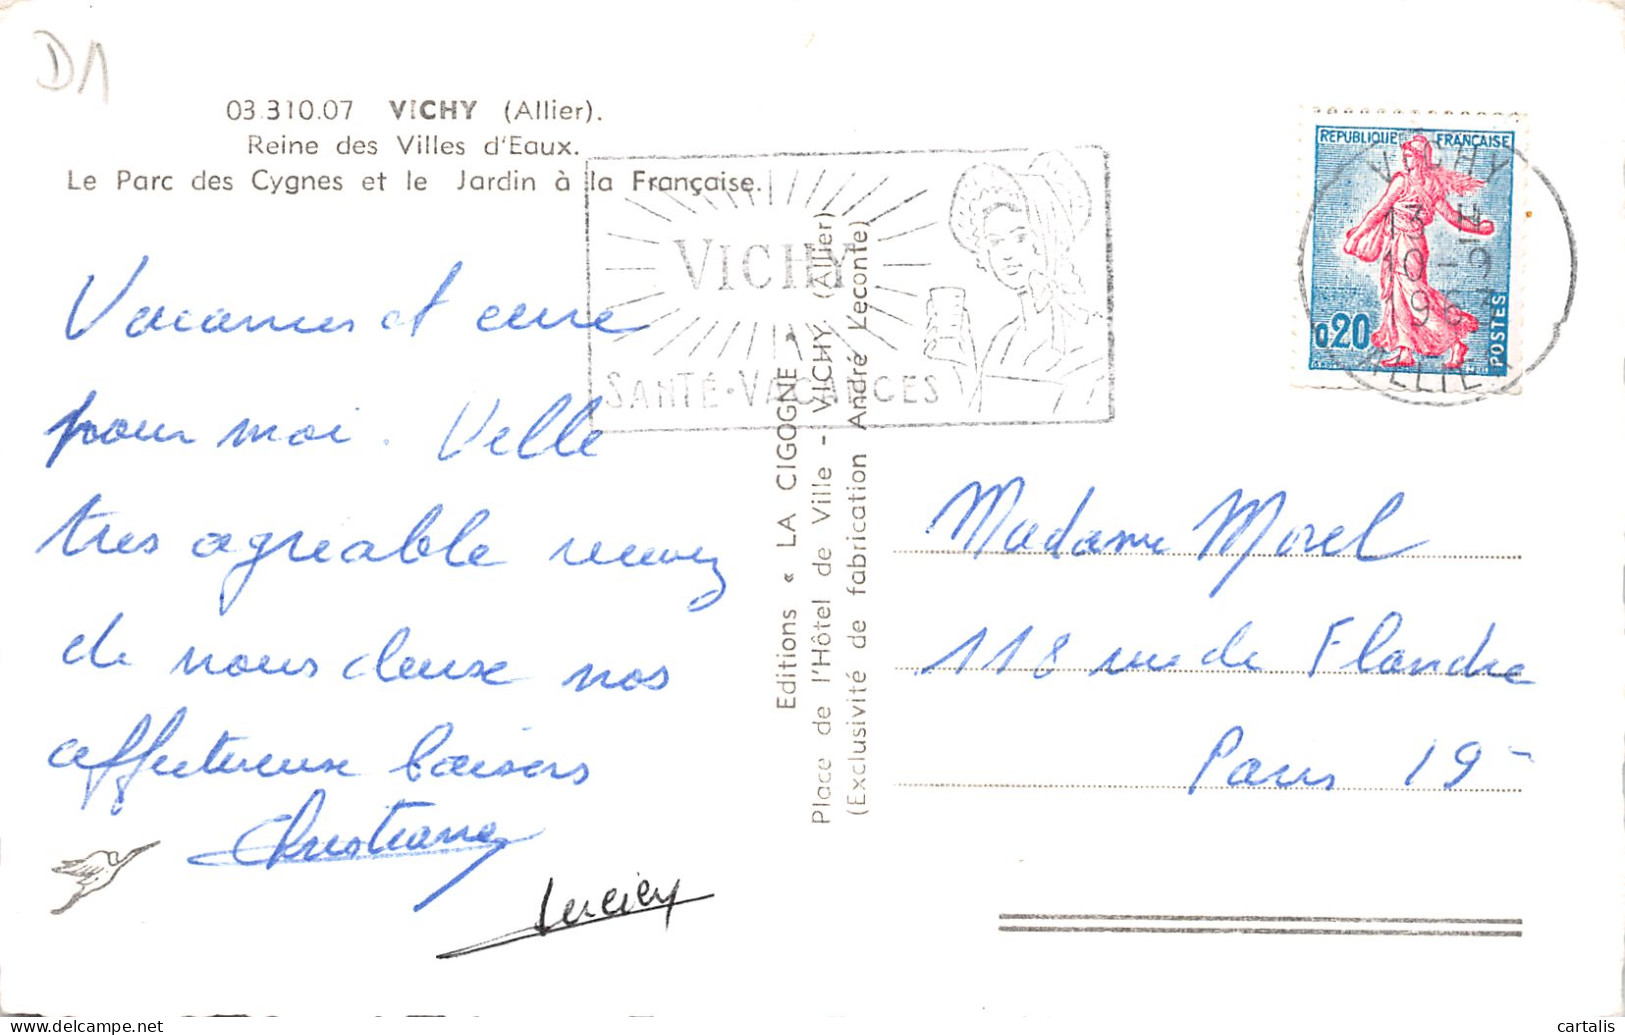 D1
03.310.07 VICHY (Allier).
Reine des Villes d'Eaux.
Le Parc des Cygnes et le Jardin à la Française.
VICHY
SANTÉ·VACANCES
REPUBLIQUE FRANÇAISE
0,20
POSTES
VICHY
13 H
10-9
1963
ALLIER
Vacances et cure
pour moi. Ville
tres agreable recevez
de nous deux nos
affectueux baisers
Christiane
Lucien
Editions « LA CIGOGNE »
Place de l'Hôtel de Ville - VICHY (Allier)
(Exclusivité de fabrication André Leconte)
Madame Morel
118 rue de Flandre
Paris 19e
cartalis
www.delcampe.net